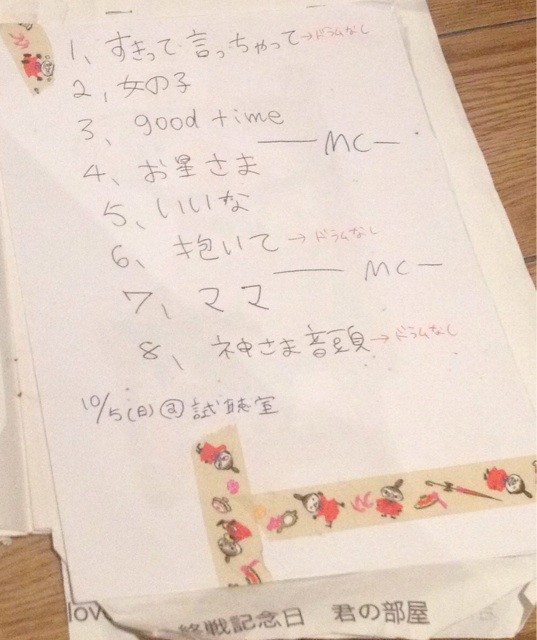 1、すきって言っちゃって→ドラムなし
2、女の子
3、good time
——MC—
4、お星さま
5、いいな
6、抱いて→ドラムなし
——MC—
7、ママ
8、神さま音頭→ドラムなし
10/5(日)@試聴室
love
終戦記念日 君の部屋